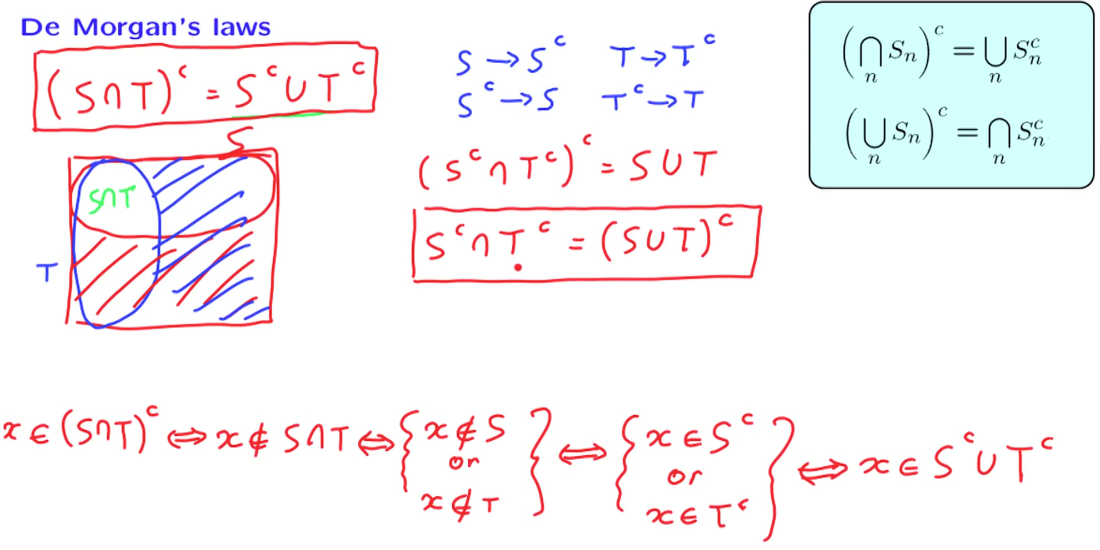 De Morgan's laws
(S∩T)ᶜ = Sᶜ∪Tᶜ
S
S∩T
T
S → Sᶜ T → Tᶜ
Sᶜ → S Tᶜ → T
(Sᶜ∩Tᶜ)ᶜ = S∪T
Sᶜ∩Tᶜ = (S∪T)ᶜ
(⋂ₙ Sₙ)ᶜ = ⋃ₙ Sₙᶜ
(⋃ₙ Sₙ)ᶜ = ⋂ₙ Sₙᶜ
x ∈ (S∩T)ᶜ ⇔ x ∉ S∩T ⇔ { x ∉ S or x ∉ T } ⇔ { x ∈ Sᶜ or x ∈ Tᶜ } ⇔ x ∈ Sᶜ∪Tᶜ